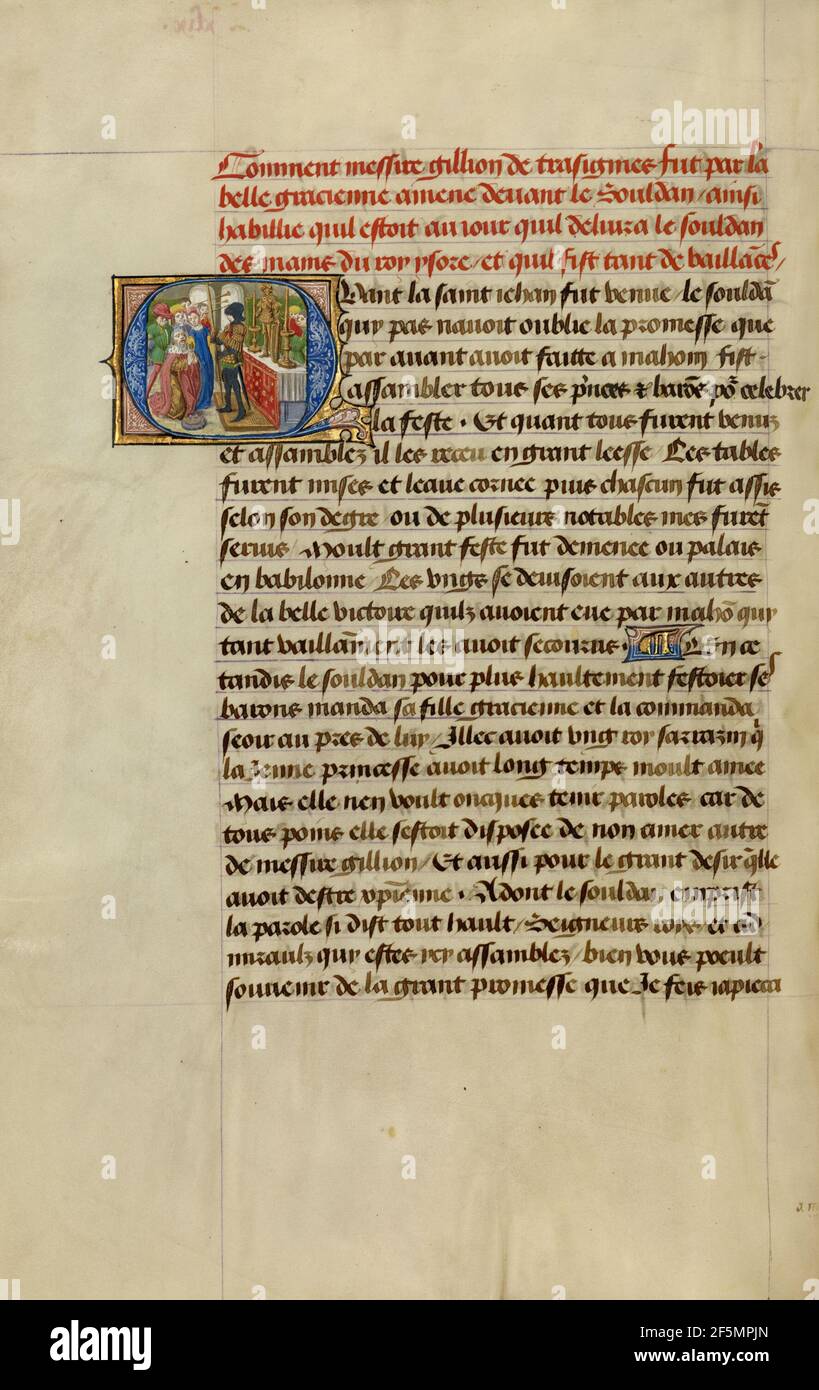 xlix.
Comment messire gillion de trasignies fut par la
belle gracienne amene devant le Souldan / ainsi
habillie quil estoit au iour quil delivra le souldan
des mains du roy ysore / et quil fist tant de vaillāces /
Quant la saint iehan fut venue / le souldā
quy pas navoit oublie la promesse que
par avant avoit faitte a mahom fist
assambler tous ses p̄nces & barōs po᷑ celebrer
la feste . Et quant tous furent venuz
et assamblez il les receu en grant leesse Les tables
furent mises et leaue cornee puis chascun fut assis
selon son degre ou de plusieurs notables mes furēt
servis / Moult grant feste fut demenee ou palais
en babilonne Les ungs se devisoient aux autres
de la belle victoire quilz avoient eue par mahō quy
tant vaillāment les avoit secourus . En ce
tandis le souldan pour plus haultement festoier ses
barons manda sa fille gracienne et la commanda
seoir au pres de luy / Illec avoit ung roy sarrazin q̄
la Jenne princesse avoit long temps moult amee
Mais elle nen voult oncques tenir paroles car de
tous poins elle sestoit disposee de non amer autre
de messire gillion / Et aussi pour le grant desir q̄lle
avoit destre xp̄ienne . Adont le souldan emprist
la parole si dist tout hault / Seigneurs roys et ad
miraulz quy estes icy assamblez / bien vous poeult
souvenir de la grant promesse que Je feis iapieca
alamy
alamy
alamy
Image ID: 2F5MPJN
www.alamy.com